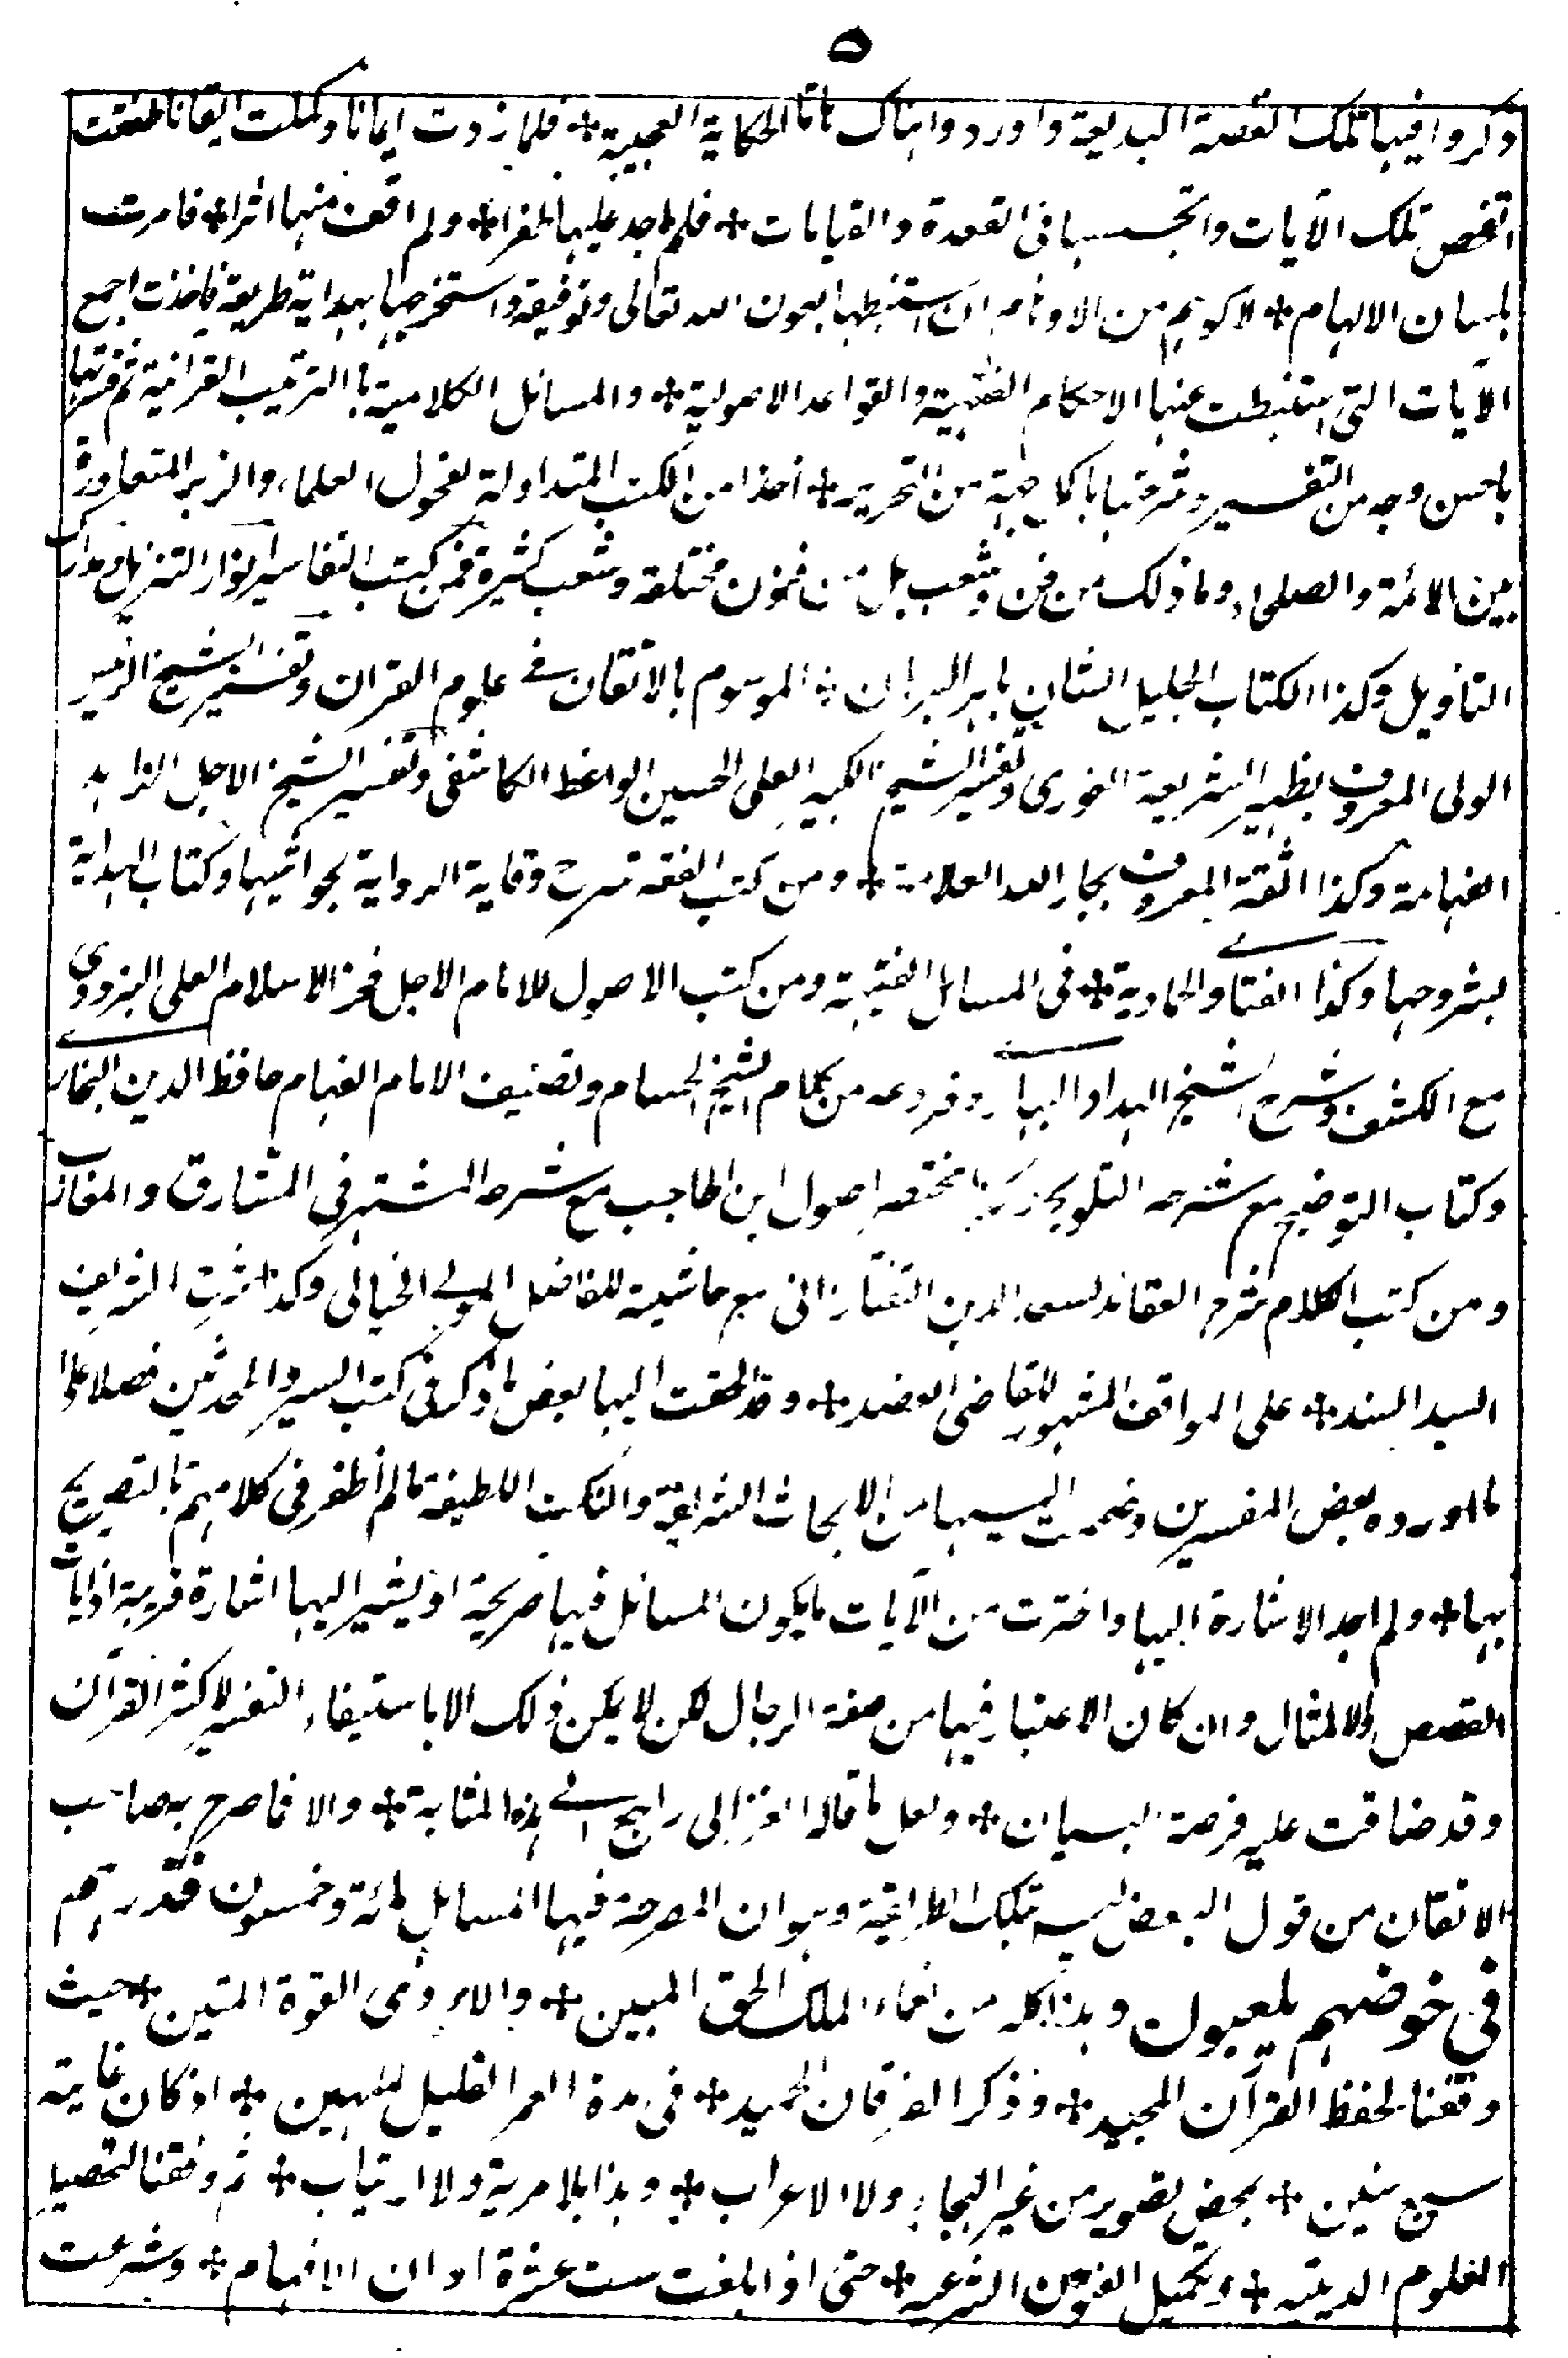 ٥
ذكروا فيها تلك القصة البديعة واوردوا هناك هاتا الحكاية العجيبة ٭ فلما زدت ايمانا وكملت ايقانا طفقت
اتفحص تلك الآيات واتجسسها فى القعدة والقيامات ٭ فلم اجد عليها ظفرا ٭ ولم اقف منها اثرا ٭ فامرت
بلسان الالهام ٭ لا كوهم من الاوهام ان استنبطها بعون الله تعالى وتوفيقه واستخرجها بهداية طريقه فاخذت اجمع
الآيات التى استنبطت عنها الاحكام الفقهية والقواعد الاصولية ٭ والمسائل الكلامية بالترتيب القرآنية ثم فسرتها
باحسن وجه من التفسير وشرحتها باكمل جهة من التحرير ٭ اخذا من الكتب المتداولة لفحول العلماء والزبر المتعاورة
بين الائمة والصلحاء وما ذلك من فن وشعب بل من فنون مختلفة وشعب كثيرة فمن كتب التفاسير انوار التنزيل ومدارك
التأويل وكذا الكتاب الجليل الشان باهر البرهان ٭ الموسوم بالاتقان فى علوم القرآن وتفسير الشيخ الزبير
الولى المعروف بظهير الشريعة الغورى وتفسير الشيخ الكبير العلى الحسين الواعظ الكاشفى وتفسير الشيخ الاجل الزاهد
الفهامة وكذا الثقة المعروف بجار الله العلامة ٭ ومن كتب الفقه شرح وقاية الرواية بحواشيها وكتاب الهداية
بشروحها وكذا الفتاوى الحمادية ٭ فى المسائل الفقهية ومن كتب الاصول للامام الاجل فخر الاسلام العلى البزدوى
مع الكشف وشرح الشيخ الهداد اليها وفروعه من كلام الشيخ الحسام وتصنيف الامام الهمام حافظ الدين البخارى
وكتاب التوضيح مع شرحه التلويح وكذا مختصر اصول ابن الحاجب مع شرحه المشتهر فى المشارق والمغارب
ومن كتب الكلام شرح العقائد لسعد الدين التفتازانى مع حاشية للفاضل المولى الخيالى وكذا شرح الشريف
السيد السند ٭ على المواقف المشهور للقاضى العضد ٭ وقد الحقت اليها بعض ما ذكر فى كتب السير والمحدثين فضلا عما
ما اورده بعض المفسرين وضممت اليها من الابحاث الشريفة والنكت اللطيفة ما لم اظفر فى كلامهم بالتصريح
بها ٭ ولم اجد الاشارة اليها واخترت من الآيات ما يكون المسائل فيها صريحة او يشير اليها اشارة قريبة اذ آيات
القصص والامثال وان كان الاعتبار فيها من صفة الرجال لكن لا يمكن ذلك الا باستيفاء التفسير لاكثر القرآن
وقد ضاقت عليه فرصة البيان ٭ ولعل ما قاله الغزالى راجع الى هذه المثابة ٭ والا فما صرح به صاحب
الاتقان من قول البعض ليس بتلك الطريقة وهو ان المصرحة فيها المسايل مائة وخمسون فذرهم
فى خوضهم يلعبون وهذا كله من نعماء الملك الحق المبين ٭ والاله ذى القوة المتين ٭ حيث
وفقنا لحفظ القرآن المجيد ٭ وذكرا الفرقان الحميد ٭ فى مدة العمر القليل المهين ٭ اذ كان غايته
سبع سنين ٭ بمحض تصوير من غير الهجاء ولا الاعراب ٭ وهذا بلا مرية ولا ارتياب ٭ ثم وفقنا لتحصيل
العلوم الدينية ٭ وتكميل الفنون الشرعية ٭ حتى اذا بلغت ست عشرة اوان الافهام ٭ وشرعت